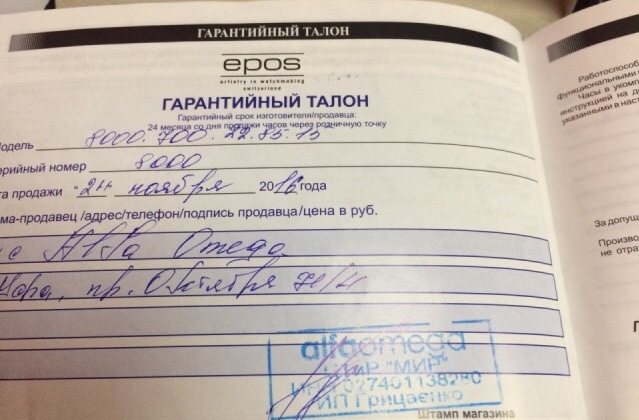 ГАРАНТИЙНЫЙ ТАЛОН
epos
artistry in watchmaking
switzerland
ГАРАНТИЙНЫЙ ТАЛОН
Гарантийный срок изготовителя/продавца:
24 месяца со дня продажи часов через розничную точку
одель 8000.700.22.85.15
ерийный номер 8000
та продажи "24" ноября 2016 года
ма-продавец /адрес/телефон/подпись продавца/цена в руб.
Альфа Омега
пр. Октября
alfaomega
"МИР"
ИНН 027401138290
ИП Грицаенко
Штамп магазина
Работоспособ
функциональными
Часы в укомп
инструкцией на д
указанными в нас
За допущ
Произво
не отра